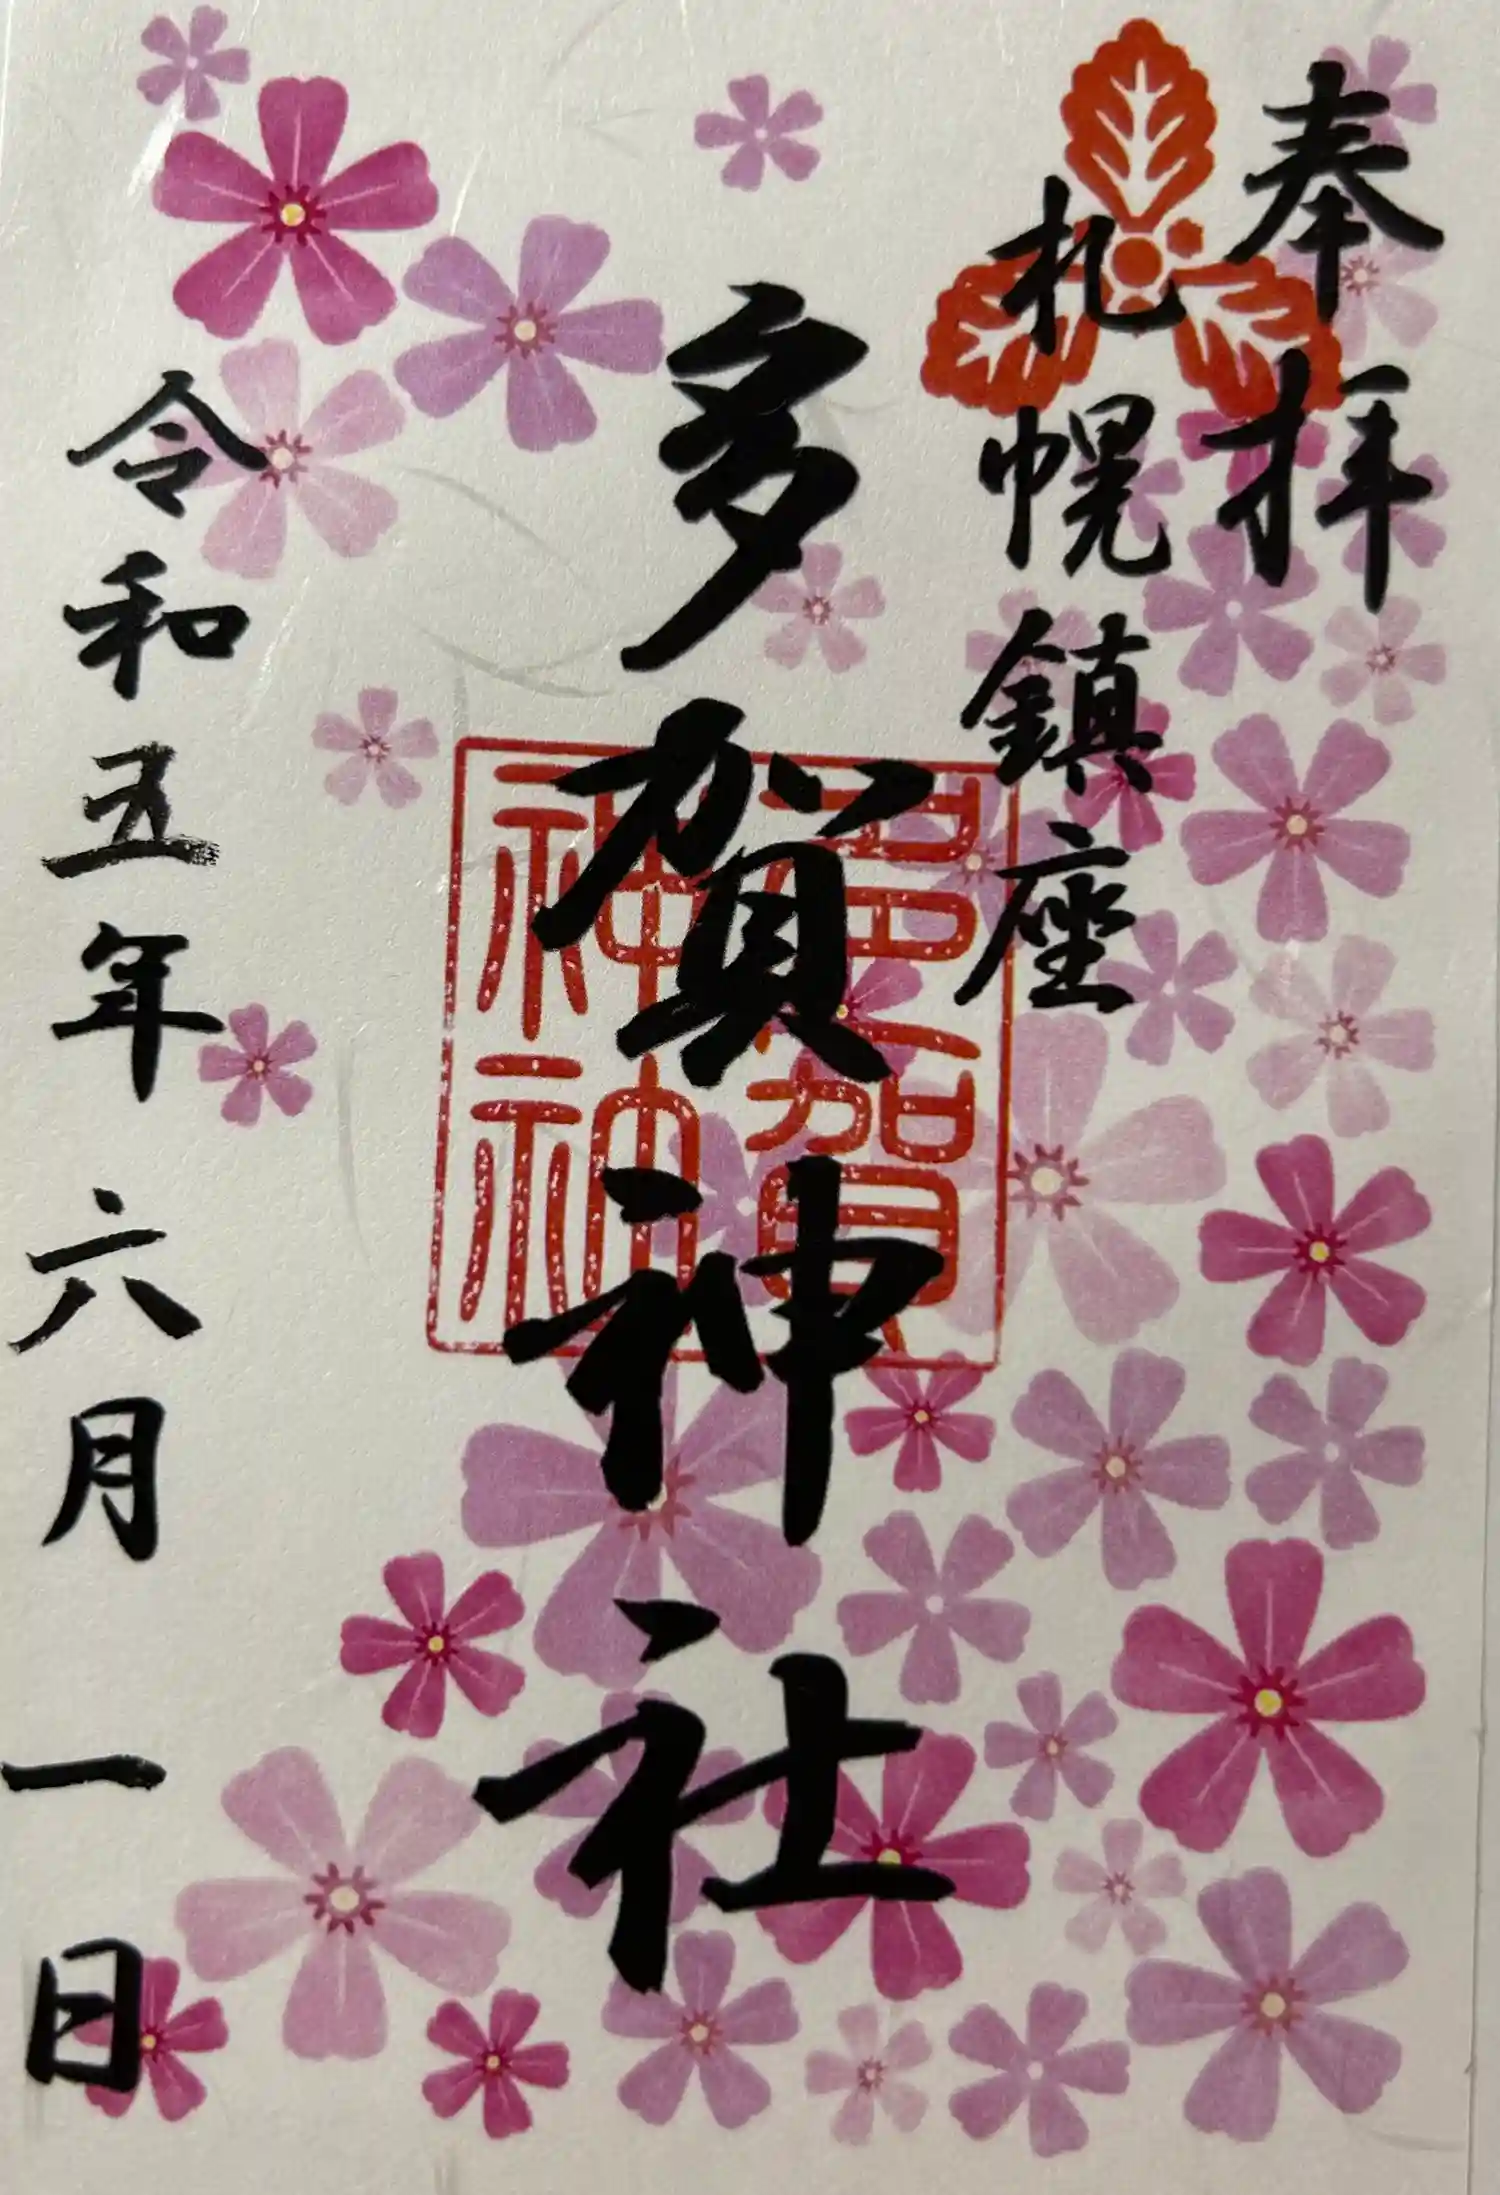 奉拝
札幌鎮座
多賀神社
令和五年六月一日